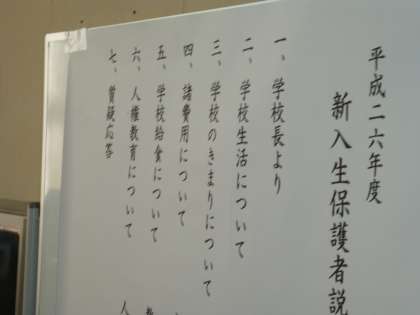 平成二六年度
新入生保護者説
一、学校長より
二、学校生活について
三、学校のきまりについて
四、諸費用について
五、学校給食について
六、人権教育について
七、質疑応答